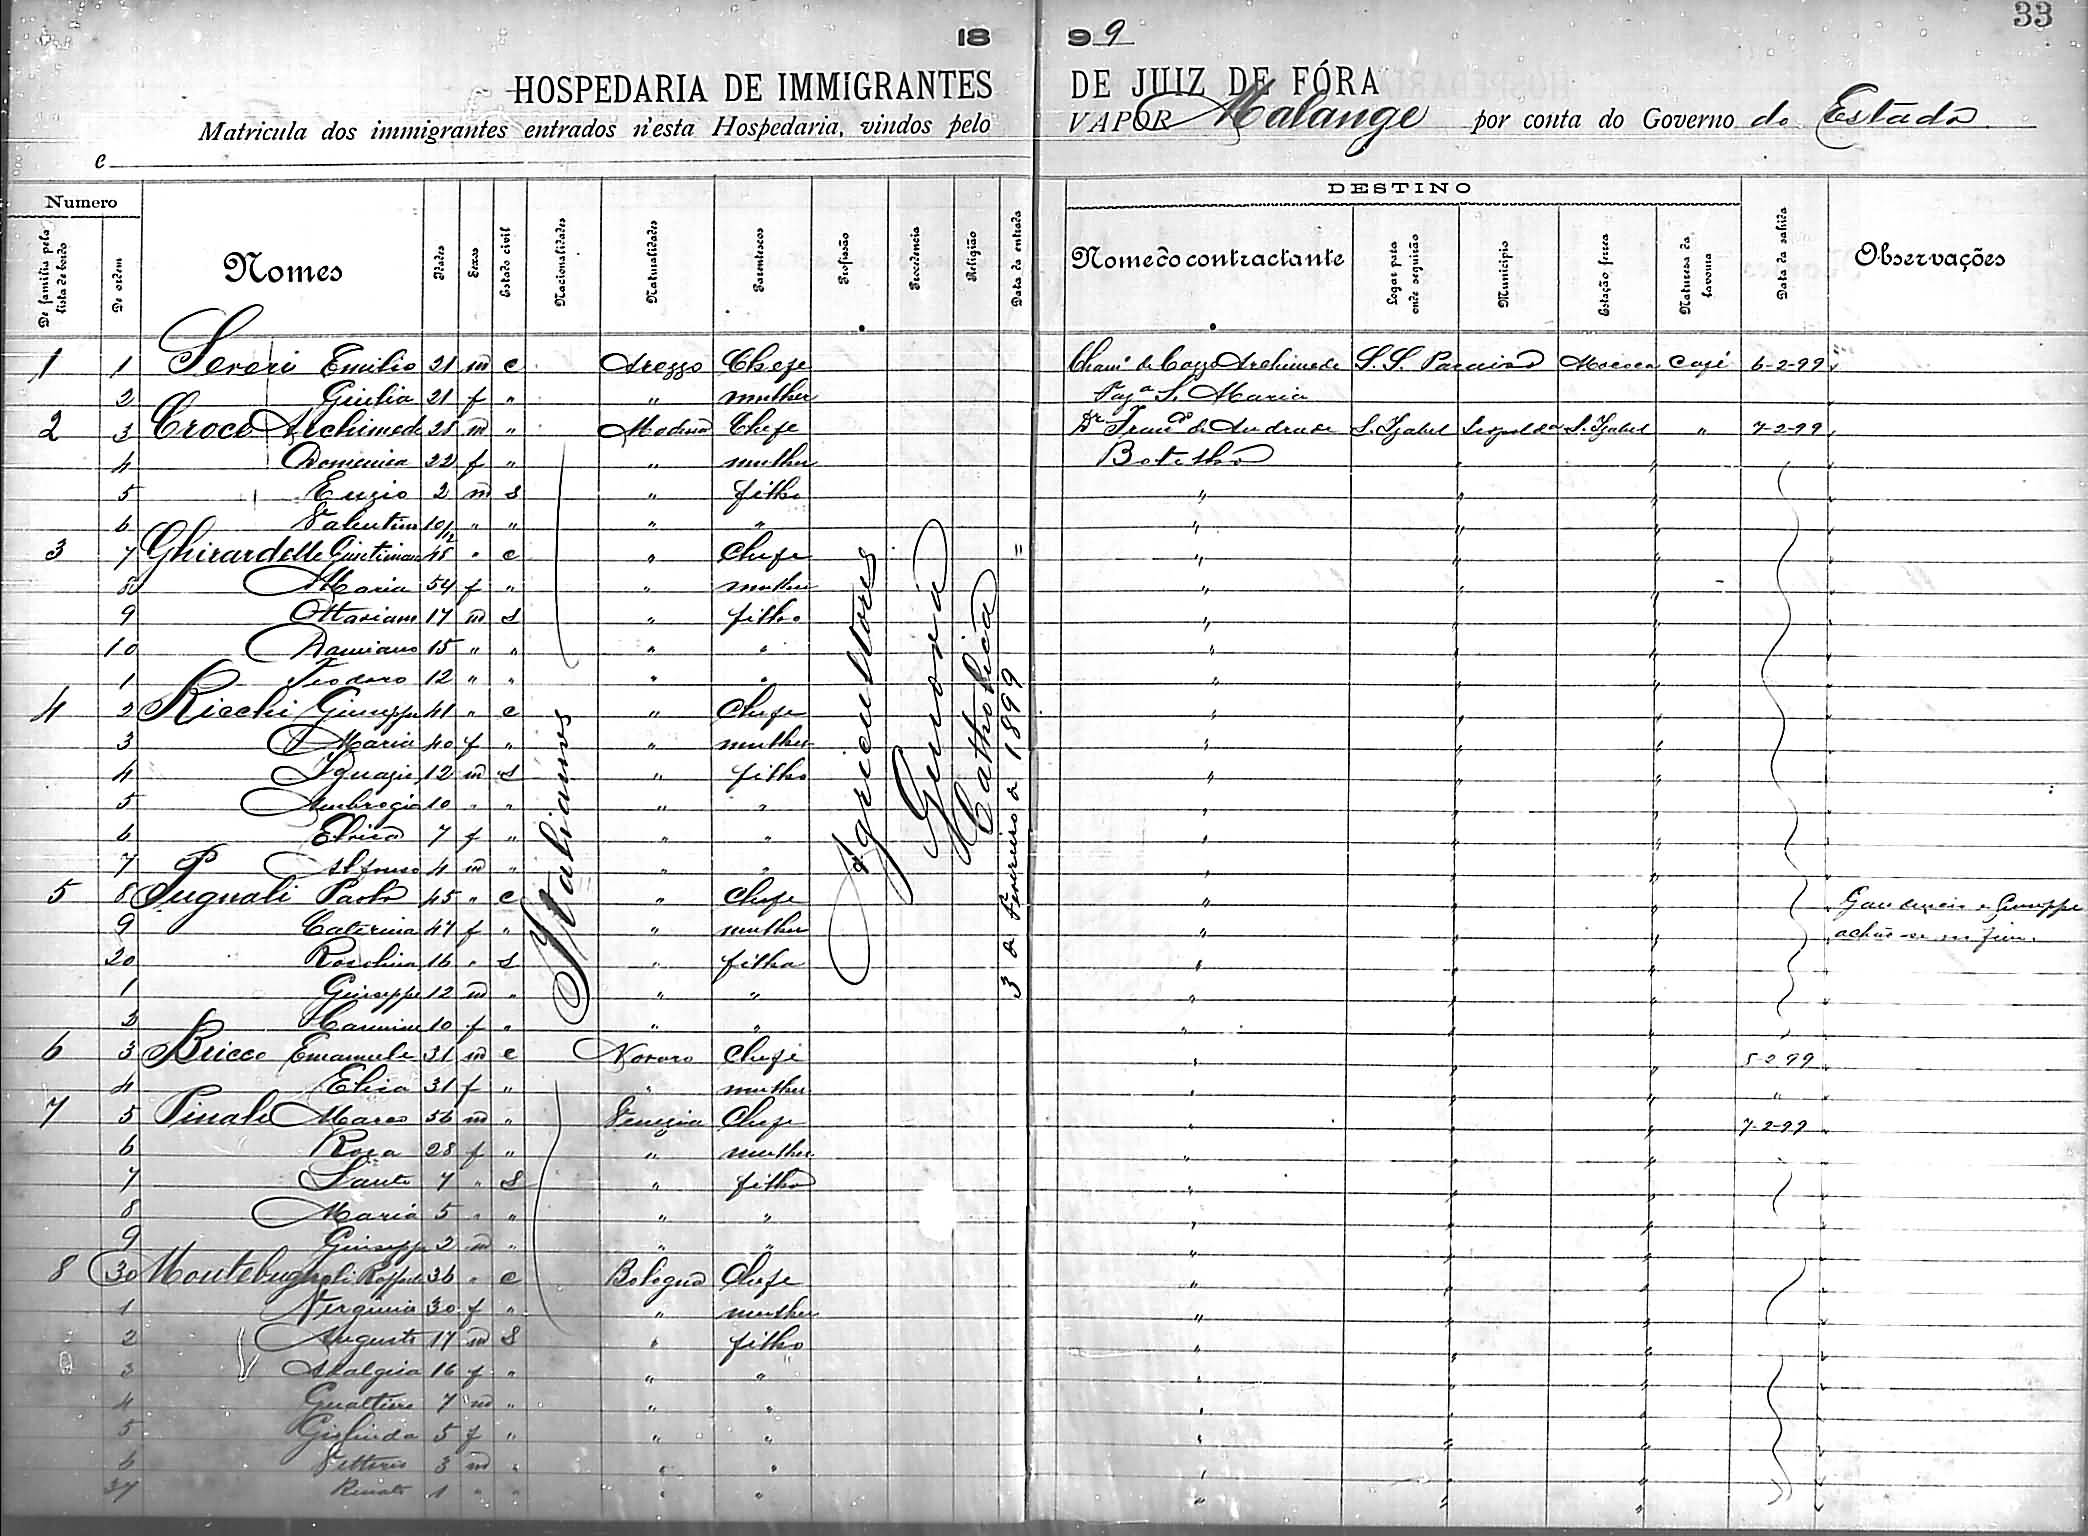 33
18 99
HOSPEDARIA DE IMMIGRANTES DE JUIZ DE FÓRA
Matricula dos immigrantes entrados n'esta Hospedaria, vindos pelo VAPOR Malange por conta do Governo do Estado
e
DESTINO
Numero
De familia pela lista de bordo
De ordem
Nomes
Idades
Sexos
Estado civil
Nacionalidades
Naturalidades
Parentescos
Profissão
Procedencia
Religião
Data da entrada
Nome do contractante
Logar para onde seguirão
Municipio
Estação ferrea
Natureza da lavoura
Data da sahida
Observações
1 1 Severi Emilio 21 m c Arezzo Chefe Archimede S. S. Paraiso Mococa Café 6-2-99
2 Giulia 21 f " " mulher S. Maria
2 3 Croce Archimede 28 m " Modena Chefe Dr Franco de Andrade S. Izabel Leopoldina S. Izabel " 7-2-99
4 Domenica 22 f " " mulher Botelho " "
5 Enzio 2 m s " filho " " "
6 Valentino 10/12 " " " " " " "
3 7 Ghirardelle 45 " c " Chefe " " "
8 Maria 54 f " " mulher " " "
9 Ottaviano 17 m s " filho " " "
10 Damiano 15 " " " " " " "
1 Teodoro 12 " " " " " " "
4 2 Ricchi Giuseppe 41 " c " Chefe " " "
3 Maria 40 f " " mulher " " "
4 Ignazio 12 m s " filho " " "
5 Ambrogio 10 " " " " " " "
6 Elvira 7 f " " " " " "
7 Alfonso 4 m " " " " " "
5 8 Pugnali Paolo 45 " c " Chefe " " " Gaudencio e Giuseppe
9 Caterina 47 f " " mulher " " " achão-se no fim.
20 Roschina 16 " s " filha " " "
1 Giuseppe 12 m " " " " " "
2 10 f " " " " " "
6 3 Bricco Emanuele 31 m c Novara Chefe " " " 5-2-99
4 Elisa 31 f " " mulher " " " "
7 5 Pinale Marco 56 m " Venezia Chefe " " " 7-2-99
6 Rosa 28 f " " mulher " " "
7 Sante 7 " s " filho " " "
8 Maria 5 " " " " " " "
9 Giuseppe 2 m " " " " " "
8 30 Montebugnoli 36 " c Bologna Chefe " " "
1 Verginia 30 f " " mulher " " "
2 Augusto 17 m s " filho " " "
3 Adalgisa 16 f " " " " " "
4 Gualtiero 7 m " " " " " "
5 Gislinda 5 f " " " " " "
6 Vittorio 3 m " " " " " "
37 Renato 1 " " " " " " "
Italianos
Agricultores
Genova
Catholica
3 a Fevereiro a 1899